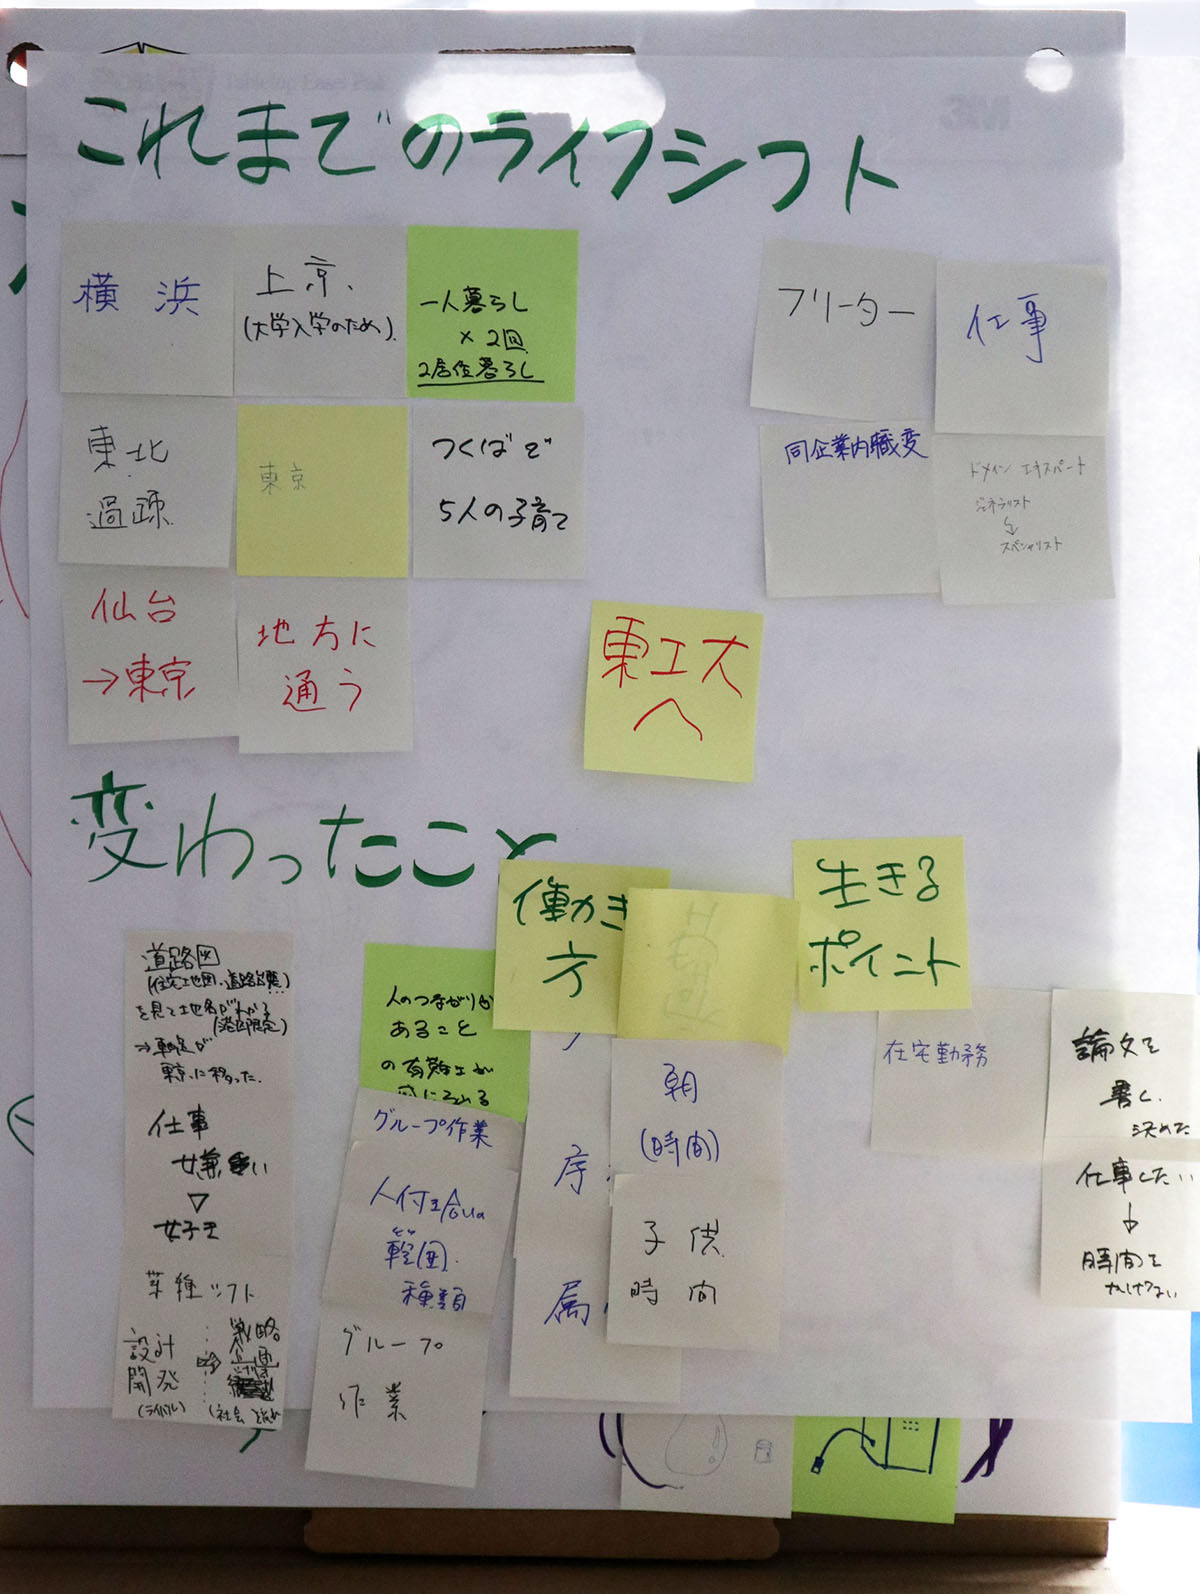 これまでのライフシフト
横浜
上京、
(大学入学のため)
一人暮らし
×2回
2居住暮らし
フリーター
仕事
東北
過疎
東京
つくばで
5人の子育て
同企業内職変
ドメインエキスパート
ジェネラリスト
スペシャリスト
仙台
→東京
地方に
通う
東工大
へ
変わったこと
働き
方
生きる
ポイント
道路図
(住宅地図、道路
を見て地名がわかる
(港区限定)
東京に移った.
仕事
▽
業種シフト
設計
開発
⇒
戦略
企画
(社会
人のつながりが
あること
の有難土が
グループ作業
人付き合いの
範囲、
種類
グループ
作業
序
属
朝
(時間)
子供
時間
在宅勤務
論文を
書く、
決めた
仕事したい
↓
時間を
かけない